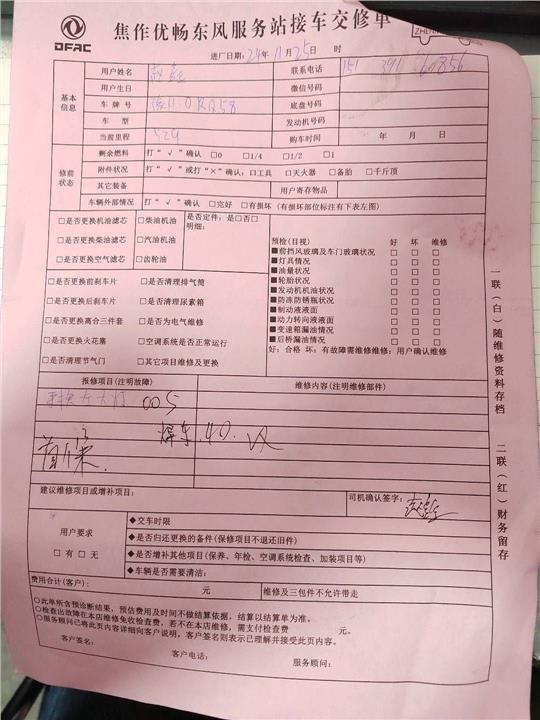 DFAC
焦作优畅东风服务站接车交修单
进厂日期：24年11月25日 时
基本信息
用户姓名 联系电话 151 391 60856
用户生日 微信号码
车牌号 底盘号码
车型 发动机号码
当前里程 购车时间 年 月 日
修前状态
剩余燃料 打“√”确认 □0 □1/4 □1/2 □1
附件状况 打“√”或打“×”确认：□工具 □灭火器 □备胎 □千斤顶
其它装备 用户寄存物品
车辆外部情况 打“√”确认 □完好 □有损坏（有损坏部位标注有下表左图）
□是否更换机油滤芯 □柴油机油 是否定件：是□否□
明细：
□是否更换柴油滤芯 □汽油机油
□是否更换空气滤芯 □齿轮油
□是否更换前刹车片 □是否清理排气筒
□是否更换后刹车片 □是否清理尿素箱
□是否更换离合三件套 □是否为电气维修
□是否更换火花塞 □空调系统是否正常运行
□是否清理节气门 □其它项目维修及更换
预检（目视） 好 坏 维修
■前挡风玻璃及车门玻璃状况 □ □ □
■灯具情况 □ □ □
■油量状况 □ □ □
■轮胎状况 □ □ □
■发动机机油情况 □ □ □
■防冻防锈瓶状况 □ □ □
■制动液液面 □ □ □
■动力转向液液面 □ □ □
■变速箱漏油情况 □ □ □
■后桥漏油情况 □ □ □
好：合格 坏：有故障需维修维修：用户确认维修
报修项目（注明故障） 维修内容（注明维修部件）
005
40.
建议维修项目或增补项目： 司机确认签字：
用户要求
□有 □无
◆交车时限
◆是否归还更换的备件（保修项目不退还旧件）
◆是否增补其他项目（保养、年检、空调系统检查、加装项目等）
◆车辆是否需要清洁：
费用合计（客户）： 元 维修及三包件不允许带走
○此单所含预诊断结果，预估费用及时间不做结算依据，结算以结算单为准。
○检查出故障在本店维修免收检查费，若不在本店维修，需支付检查费 元。
○服务顾问已将此页内容详细向客户说明，客户签名则表示已理解并接受此页内容。
客户签名： 客户电话： 服务顾问：
一联（白）随维修资料存档 二联（红）财务留存